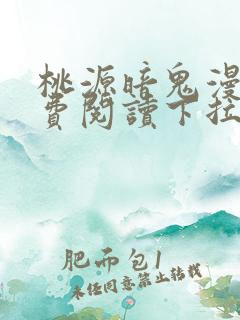 桃源暗鬼漫
費閱讀下拉
肥而包1
未任同意禁止转载